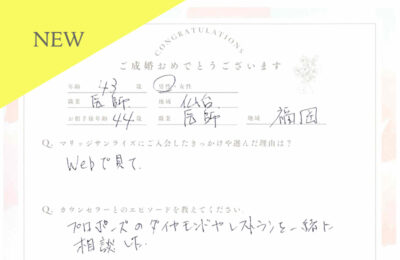 NEW
CONGRATULATIONS
ご成婚おめでとうございます
年齢 43 歳 男性・女性
職業 医師 地域 仙台
お相手様年齢 44 歳 職業 医師 地域 福岡
Q. マリッジサンライズにご入会したきっかけや選んだ理由は?
Webで見て.
Q. カウンセラーとのエピソードを教えてください.
プロポーズのダイヤモンドやレストランを一緒に
相談した.